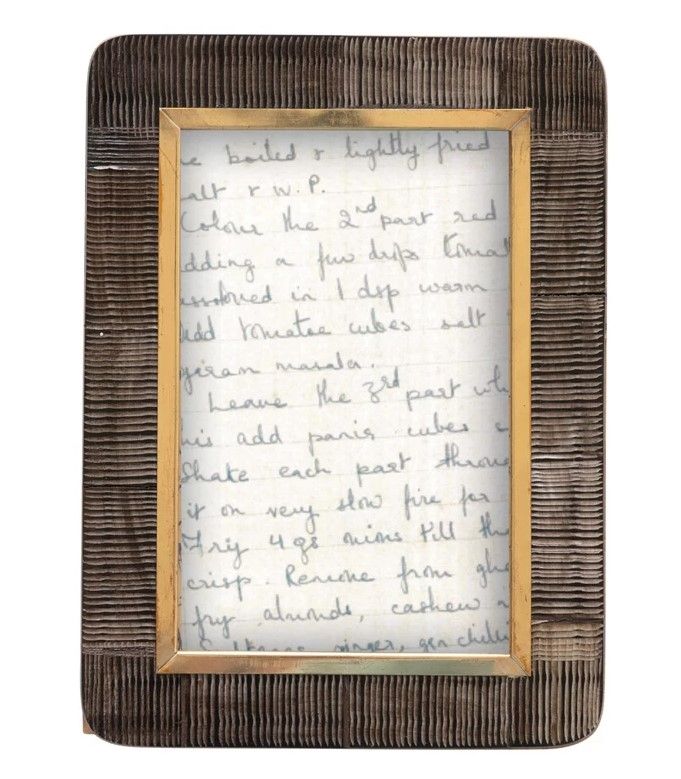 e boiled & lightly fried
alt & W.P.
Colour the 2nd part red
dding a few drops tomat
ssolved in 1 dsp warm
Add tomatoe cubes salt
garam masala.
Leave the 3rd part wh
his add panir cubes
Shake each part throu
it on very slow fire for
Fry 4 gs onions till th
crisp. Remove from ghe
fry almonds, cashew n
Sultanas ginger, grn chilli